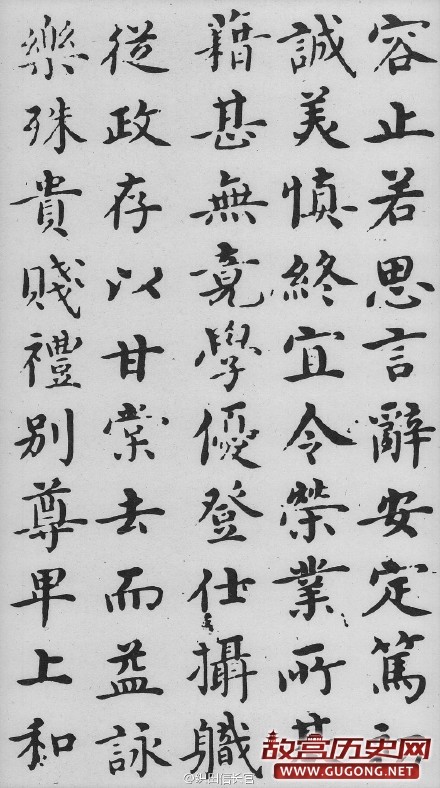 容止若思言辭安定篤初
誠美慎終宜令榮業所基
籍甚無竟學優登仕攝職
從政存以甘棠去而益詠
樂殊貴賤禮別尊卑上和
故宫历史网
WWW.GUGONG.NET
@织田信长官